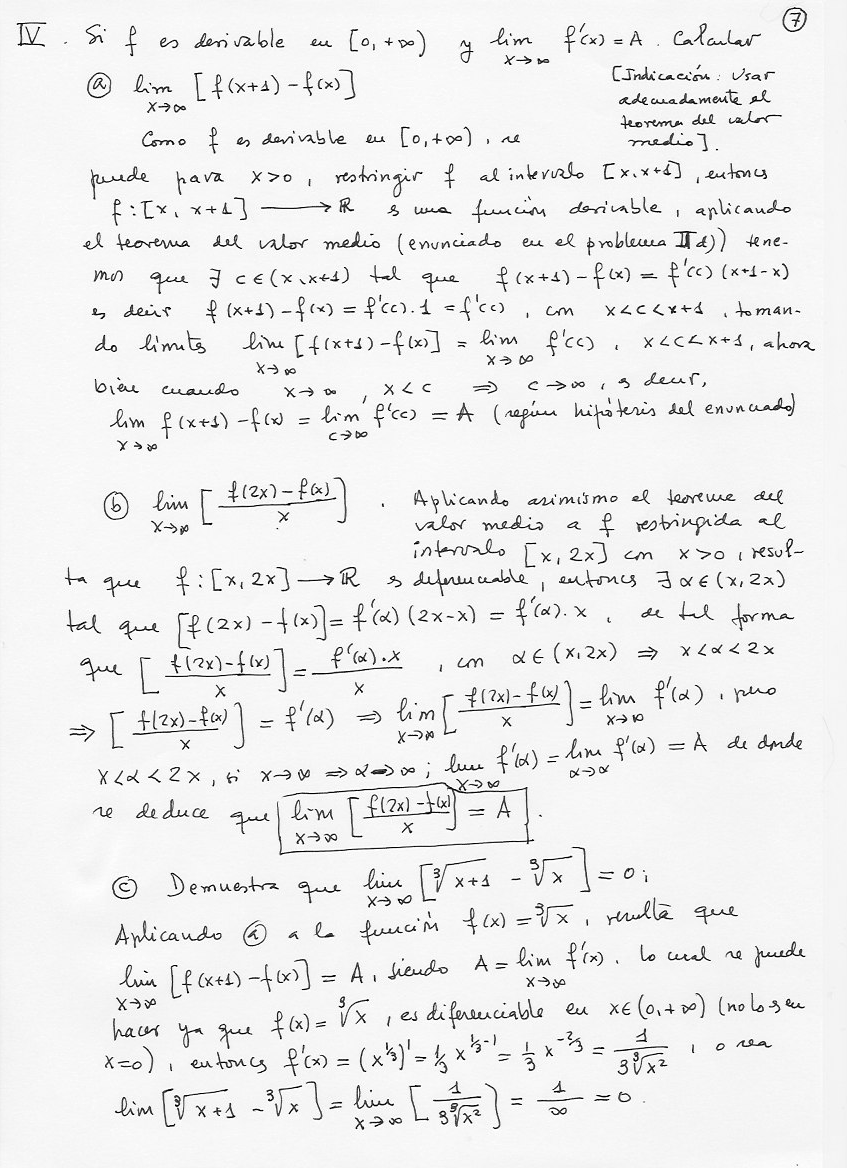 7
IV. Si f es derivable en [0, +∞) y lim x→∞ f'(x) = A. Calcular
ⓐ lim x→∞ [f(x+1) - f(x)] [Indicación: Usar
adecuadamente el
teorema del valor
medio].
Como f es derivable en [0, +∞), se
puede para x>0, restringir f al intervalo [x, x+1], entonces
f: [x, x+1] ⟶ ℝ es una función derivable, aplicando
el teorema del valor medio (enunciado en el problema II d)) tene-
mos que ∃ c ∈ (x, x+1) tal que f(x+1) - f(x) = f'(c) (x+1-x)
es decir f(x+1) - f(x) = f'(c).1 = f'(c), con x<c<x+1, toman-
do límites lim x→∞ [f(x+1) - f(x)] = lim x→∞ f'(c), x<c<x+1, ahora
bien cuando x→∞, x<c ⇒ c→∞, es decir,
lim x→∞ f(x+1) - f(x) = lim c→∞ f'(c) = A (según hipótesis del enunciado)
ⓑ lim x→∞ [(f(2x) - f(x))/x]. Aplicando asimismo el teorema del
valor medio a f restringida al
intervalo [x, 2x] con x>0, resul-
ta que f: [x, 2x] ⟶ ℝ es diferenciable, entonces ∃ α ∈ (x, 2x)
tal que [f(2x) - f(x)] = f'(α) (2x-x) = f'(α).x, de tal forma
que [(f(2x) - f(x))/x] = (f'(α).x)/x, con α ∈ (x, 2x) ⇒ x<α<2x
⇒ [(f(2x) - f(x))/x] = f'(α) ⇒ lim x→∞ [(f(2x) - f(x))/x] = lim x→∞ f'(α), pero
x<α<2x, si x→∞ ⇒ α→∞; lim x→∞ f'(α) = lim α→α f'(α) = A de donde
se deduce que lim x→∞ [(f(2x) - f(x))/x] = A.
ⓒ Demuestra que lim x→∞ [∛(x+1) - ∛x] = 0;
Aplicando ⓐ a la función f(x) = ∛x, resulta que
lim x→∞ [f(x+1) - f(x)] = A, siendo A = lim x→∞ f'(x). Lo cual se puede
hacer ya que f(x) = ∛x, es diferenciable en x∈(0, +∞) (no lo es en
x=0), entonces f'(x) = (x^(1/3))' = 1/3 x^(1/3-1) = 1/3 x^(-2/3) = 1/(3∛(x²)), o sea
lim [∛(x+1) - ∛x] = lim x→∞ [1/(3∛(x²))] = 1/∞ = 0.